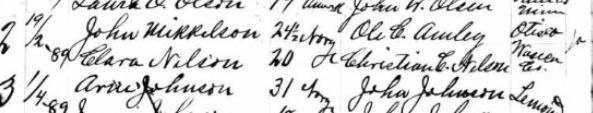 Laura O. Olson 19 John W. Olsen Minn
2 19/2-89 John Mikkelson 24½ Norg Ole C. Amley Otisco
Clara Nilson 20 Christian C. Nilson Waseca Co.
3 1/4-89 Arne Johnson 31 Norg John Johnson Lemond